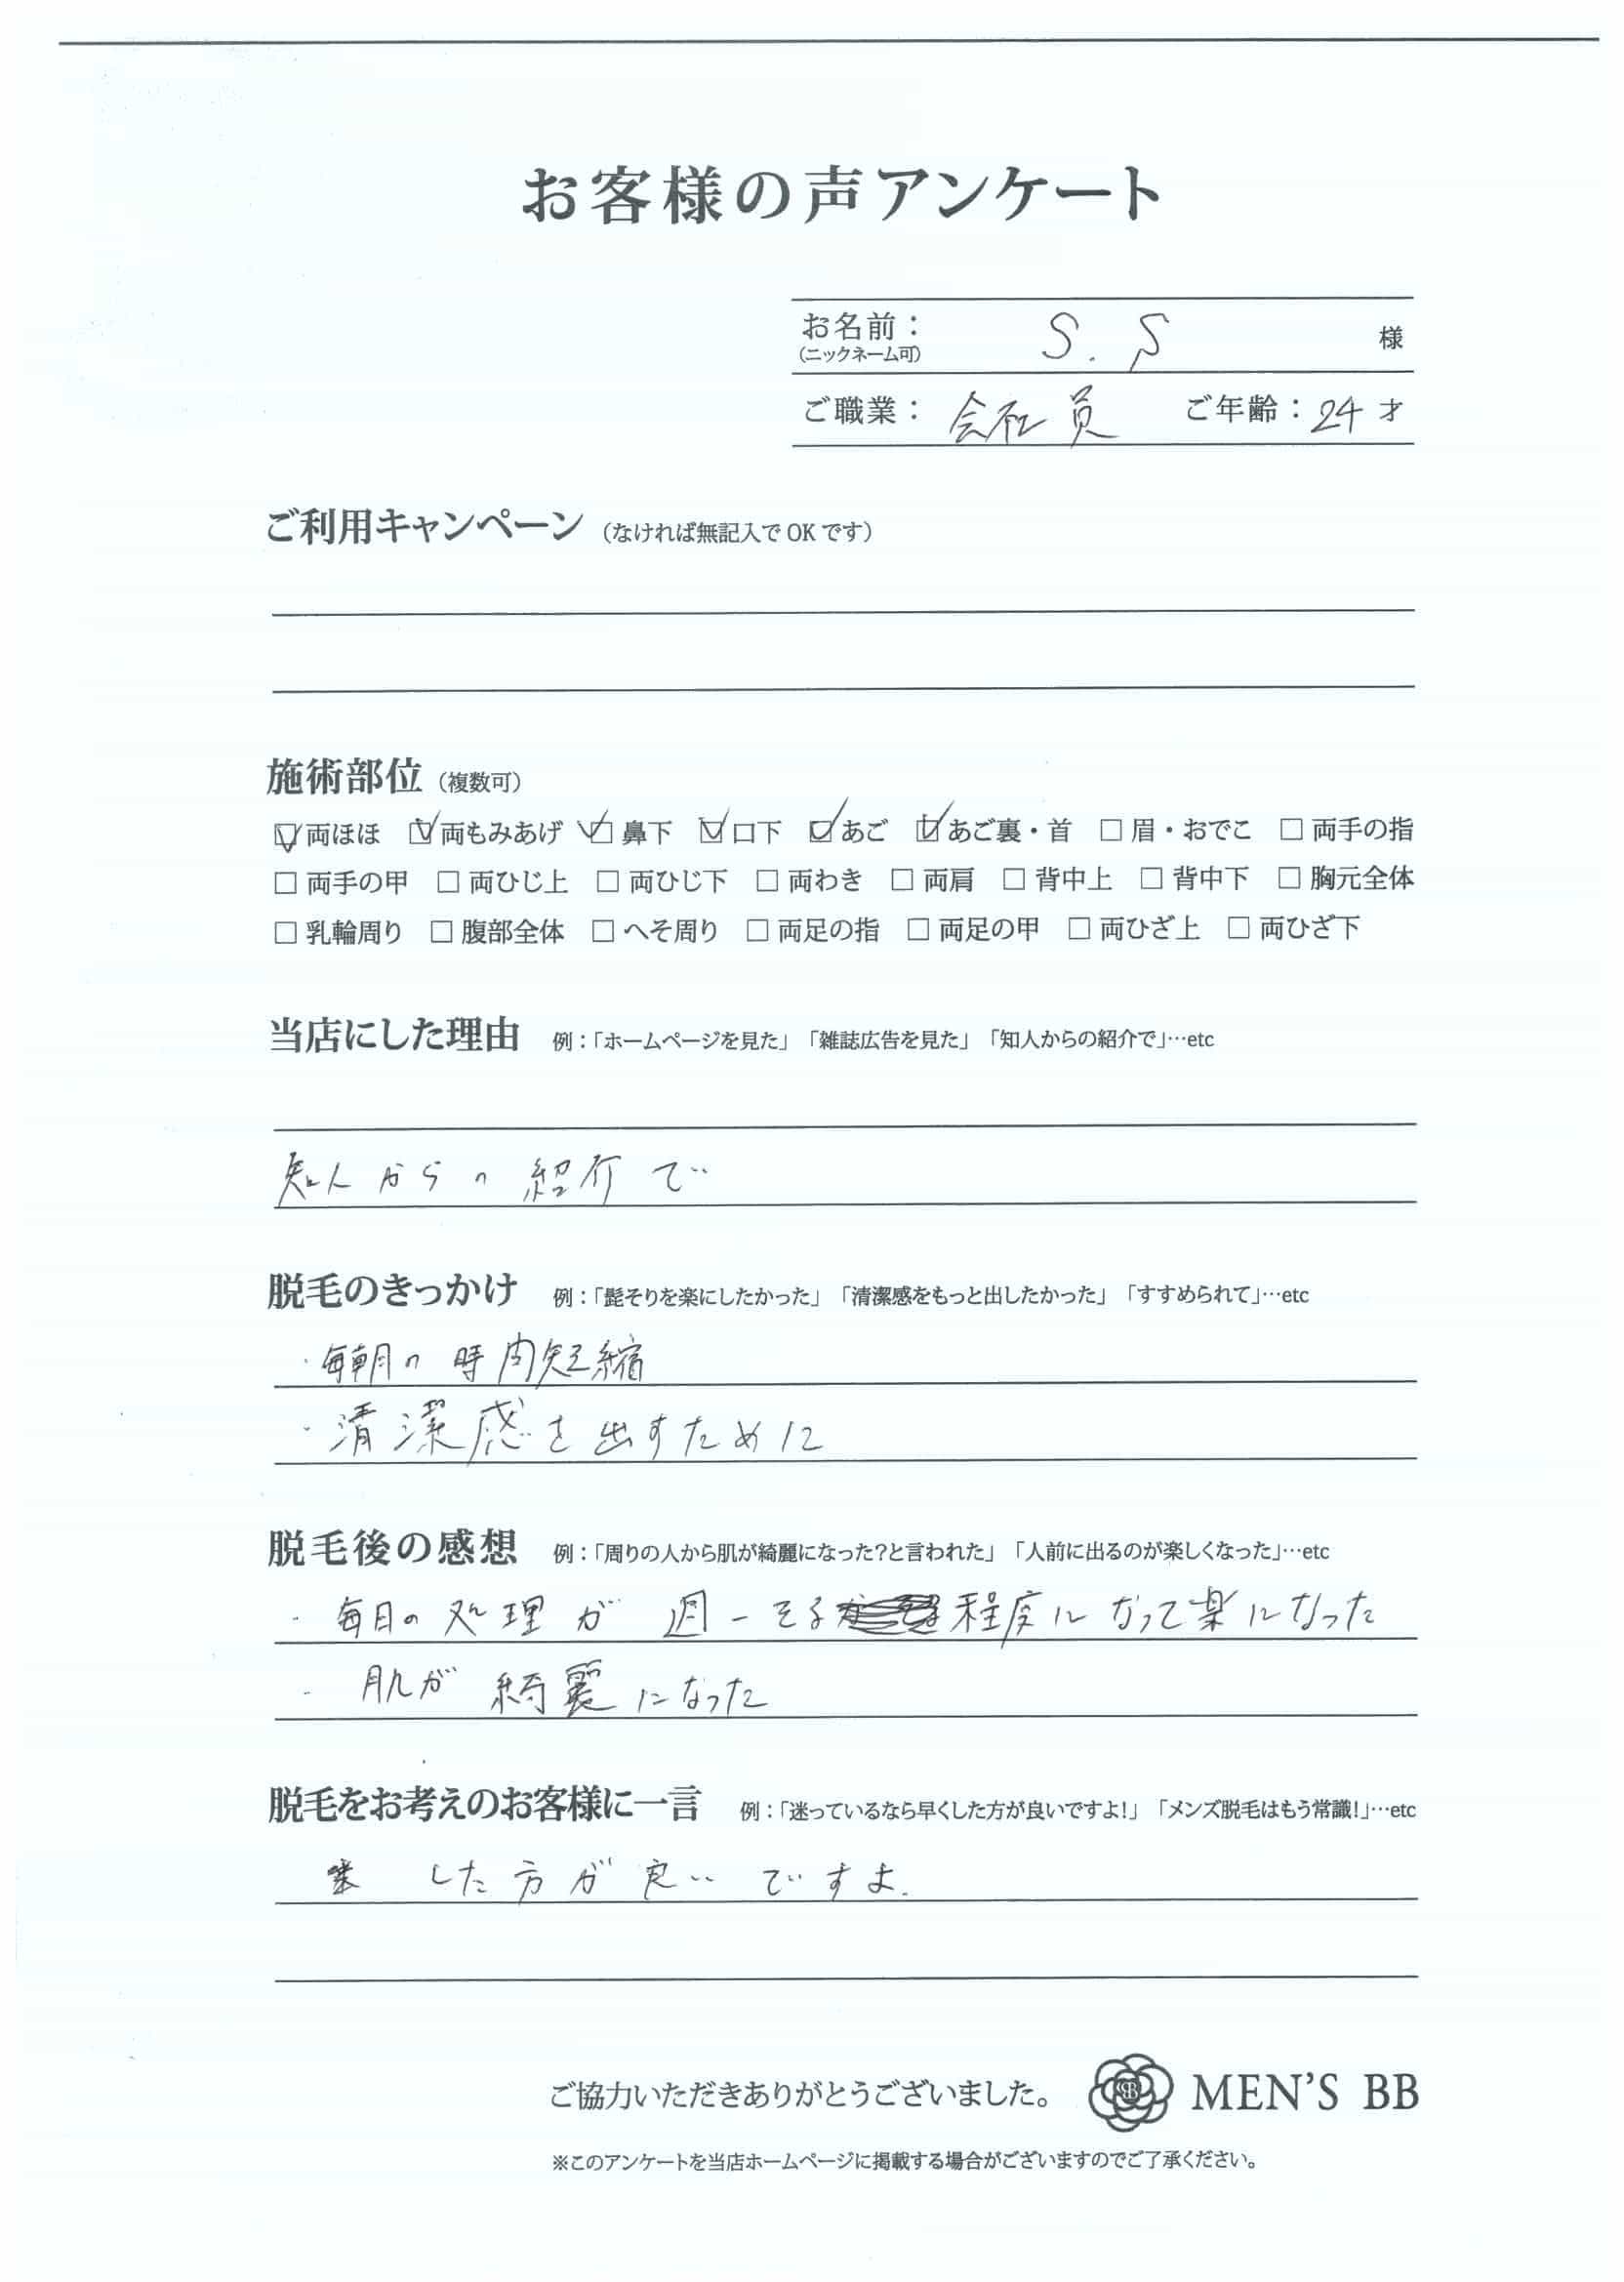 お客様の声アンケート
お名前： S. S 様
(ニックネーム可)
ご職業： 会社員 ご年齢： 24 才
ご利用キャンペーン （なければ無記入で OK です）
施術部位 （複数可）
☑ 両ほほ ☑ 両もみあげ ☑ 鼻下 ☑ 口下 ☑ あご ☑ あご裏・首 □ 眉・おでこ □ 両手の指
□ 両手の甲 □ 両ひじ上 □ 両ひじ下 □ 両わき □ 両肩 □ 背中上 □ 背中下 □ 胸元全体
□ 乳輪周り □ 腹部全体 □ へそ周り □ 両足の指 □ 両足の甲 □ 両ひざ上 □ 両ひざ下
当店にした理由 例：「ホームページを見た」「雑誌広告を見た」「知人からの紹介で」…etc
知人からの紹介で
脱毛のきっかけ 例：「髭そりを楽にしたかった」「清潔感をもっと出したかった」「すすめられて」…etc
・毎朝の時間短縮
・清潔感を出すために
脱毛後の感想 例：「周りの人から肌が綺麗になった?と言われた」「人前に出るのが楽しくなった」…etc
・毎日の処理が週一そる程度になって楽になった
・肌が綺麗になった
脱毛をお考えのお客様に一言 例：「迷っているなら早くした方が良いですよ!」「メンズ脱毛はもう常識!」…etc
した方が良いですよ.
ご協力いただきありがとうございました。 MEN'S BB
※このアンケートを当店ホームページに掲載する場合がございますのでご了承ください。